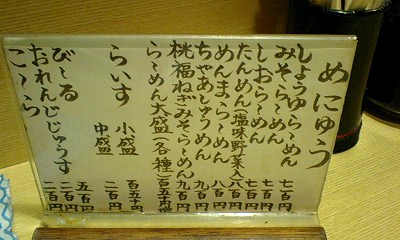 めにゅう
しょうゆら〜めん 七百円
みそら〜めん 七百円
しおら〜めん 七百円
たんめん(塩味野菜入) 八百円
めんまら〜めん 八百円
ちゃあしゅうめん 九百円
桃福ねぎみそら〜めん 九百円
ら〜めん大盛(各種) 百五十円増
らいす 小盛 百五十円
中盛 二百円
び〜る 五百円
おれんじじゅうす 二百円
こ〜ら 二百円